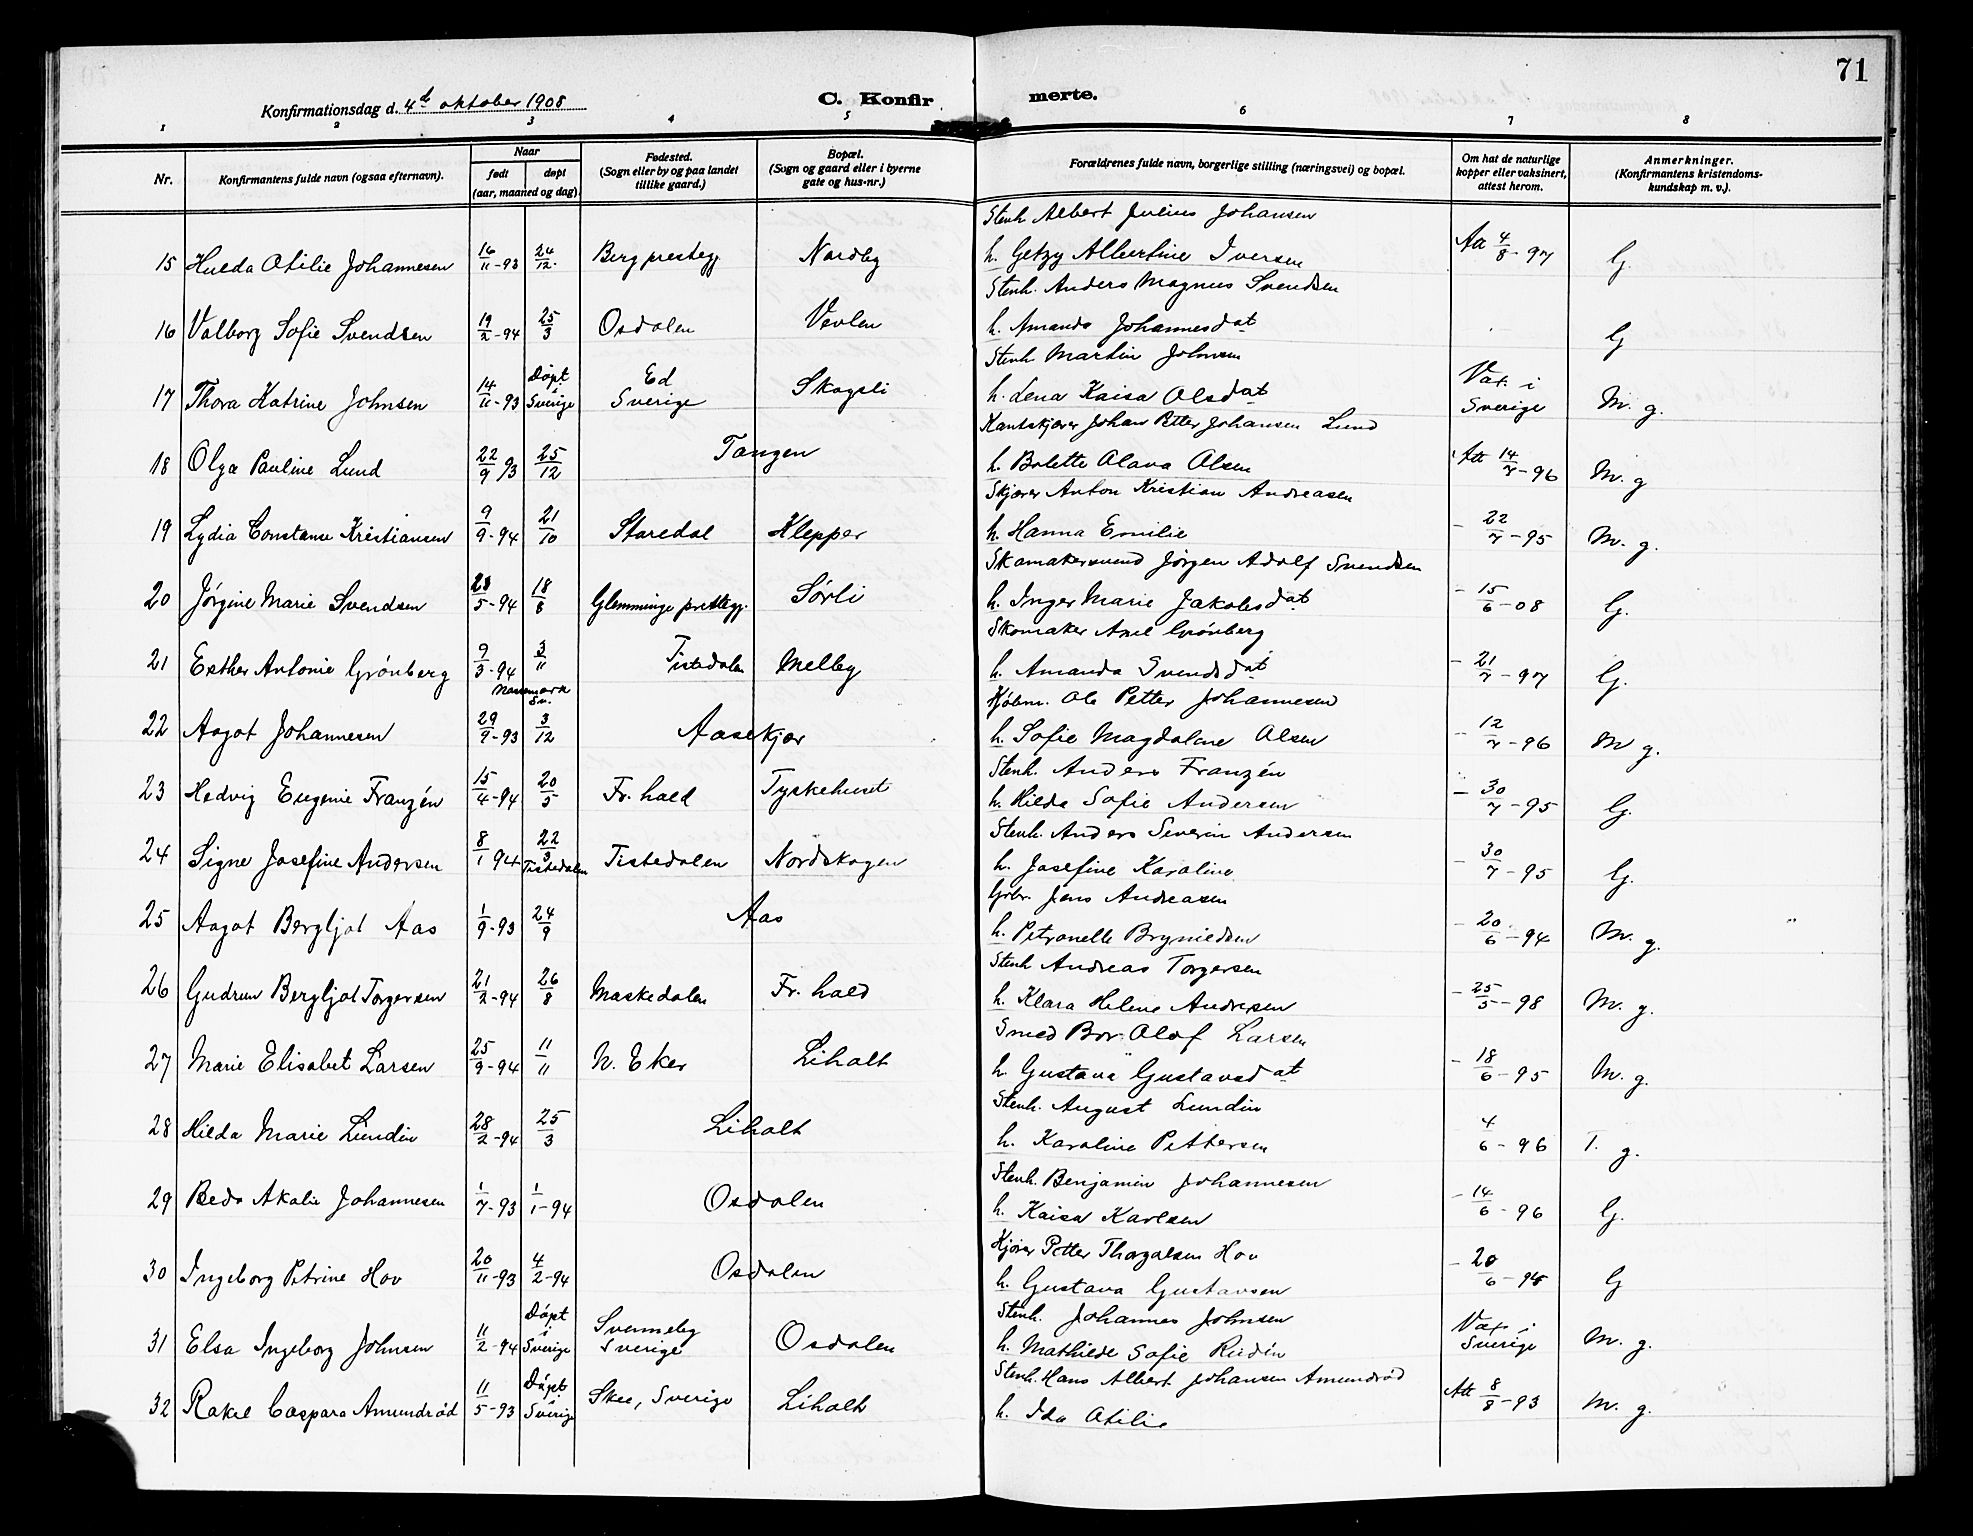 71
Konfirmationsdag d. 4de oktober 1908
C. Konfirmerte.
1 2 3 4 5 6 7 8
Nr. Konfirmantens fulde navn (ogsaa efternavn). Naar født døpt (aar, maaned og dag) Fødested. (Sogn eller by og paa landet tillike gaard.) Bopæl. (Sogn og gaard eller i byerne gate og hus-nr.) Forældrenes fulde navn, borgerlige stilling (næringsvei) og bopæl. Om hat de naturlige kopper eller vaksinert, attest herom. Anmerkninger. (Konfirmantens kristendomskundskap m. v.).
Stenh. Albert Julius Johansen
15 Hulda Otilie Johannesen 16/11-93 24/12. Berg prestegj. Nordby h. Getzy Albertine Iversen Att 4/8-97 G.
Stenh. Anders Magnus Svendsen
16 Valborg Sofie Svendsen 19/2-94 25/3 Osdalen Vevlen h. Amanda Johannesdat G
Stenh. Martin Johnsen
17 Thora Katrine Johnsen 14/11-93 Døpt i Sverige Ed Sverige Skogsli h. Lena Kaisa Olsdat Vax. i Sverige M. g.
Kantskjærer Johan Petter Johansen Lund
18 Olga Pauline Lund 22/9 93 25/12 Tangen h. Bolette Olava Olsen Att 14/7-96 M. g
Skjærer Anton Kristian Andreasen
19 Lydia Constanse Kristiansen 9/9-94 21/10 Staredal Klepper h. Hanna Emilie - 22/7-95 M. g.
Skomakersvend Jørgen Adolf Svendsen
20 Jørgine Marie Svendsen 23/5-94 18/8 Glemminge prestegj. Sørli h. Inger Marie Jakobsdat - 15/6-08 G.
Skomaker Axel Grönberg
21 Esther Antonie Grönberg 9/3-94 3/11 Tistedalen Melby h. Amanda Svendsdat - 21/7-97 G.
Nassemark Sv.
Hjøbm. Ole Petter Johannesen
22 Aagot Johannesen 29/9-93 3/12 Aasekjær h. Sofie Magdalene Olsen - 12/7-96 M g.
Stenh. Anders Franzén
23 Hedvig Eugenie Franzén 15/4-94 20/5 Fr. hald Tyskehuset h. Hilda Sofie Andersen - 30/7-95 G.
Stenh. Anders Severin Andersen
24 Signe Josefine Andersen 8/1 94 22/3 Tistedalen Tistedalen Nordskogen h. Josefine Karoline - 30/7-95 G.
Gbr. Jens Andreasen
25 Aagot Bergljot Aas 1/9-93 24/9 Aas h. Petronelle Brynildsen - 20/6-94 M. g.
Stenh Andreas Torgersen
26 Gudrun Bergljot Torgersen 21/2-94 26/8 Maskedalen Fr. hald h. Klara Helene Andresen - 25/5-98 M. g.
Smed Bror Olof Larsen
27 Marie Elisabet Larsen 25/9-94 11/11 N. Eker Liholt h. Gustava Gustavsdat - 18/6-95 M. g.
Stenh. August Lundin
28 Hilda Marie Lundin 28/2-94 25/3 Liholt h. Karoline Pettersen 4/6-96 T. g.
Stenh. Benjamin Johannesen
29 Beda Akalie Johannesen 1/7-93 1/1-94 Osdalen h. Kaisa Karlsen - 14/6-96 G.
Kjører Petter Thorvalsen Hov
30 Ingeborg Petrine Hov 20/11-93 4/2-94 Osdalen h. Gustava Gustavsen - 20/6-95 G
Stenh. Johannes Johnsen
31 Elsa Ingeborg Johnsen 11/2-94 Døpt i Sverige Svenneby Sverige Osdalen h. Mathilde Sofie Rudén Vax. i Sverige M. g.
Stenh. Hans Albert Johansen Amundrød
32 Rakel Caspara Amundrød 11/5-93 Døpt i Sverige Skee, Sverige Liholt h. Ida Otilie Att 8/8-93 M. g.